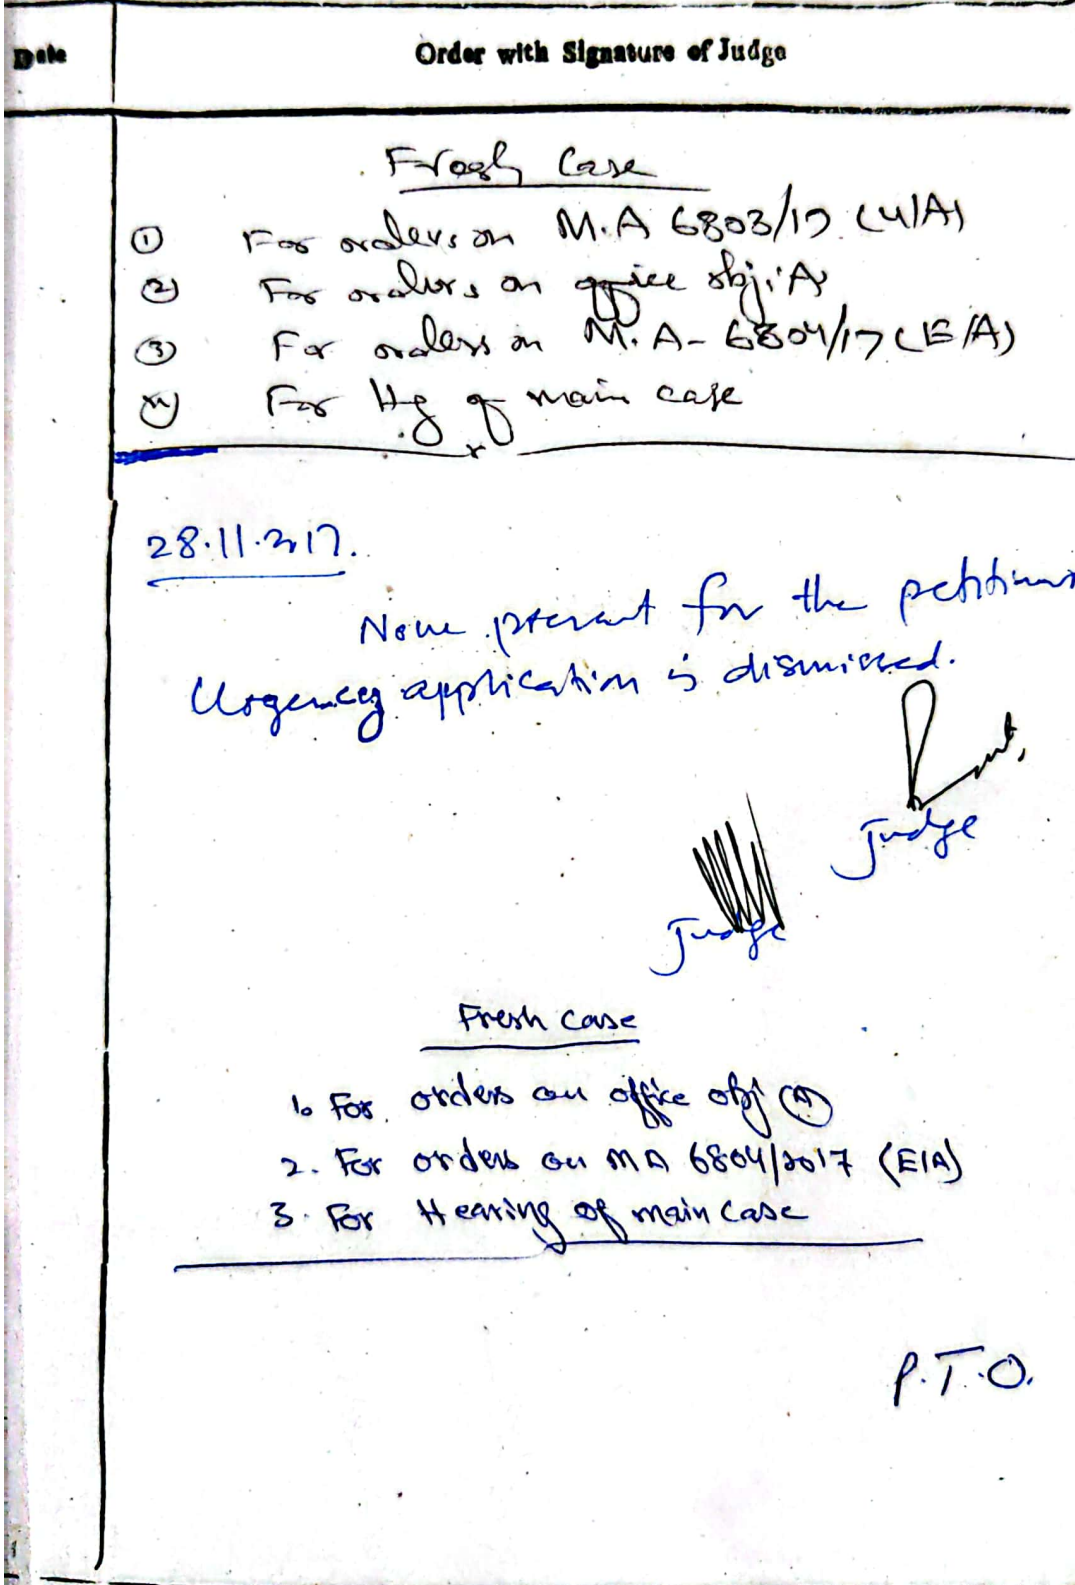 Date
Order with Signature of Judge
Fresh Case
① For orders on M.A 6803/17 (U/A)
② For orders on office obj: 'A'
③ For orders on M.A - 6804/17 (E/A)
④ For Hg of main case
28.11.2017.
None present for the petitioner
Urgency application is dismissed.
Judge
Judge
Fresh Case
1. For orders on office obj (A)
2. For orders on MA 6804/2017 (E/A)
3. For Hearing of main case
P.T.O.